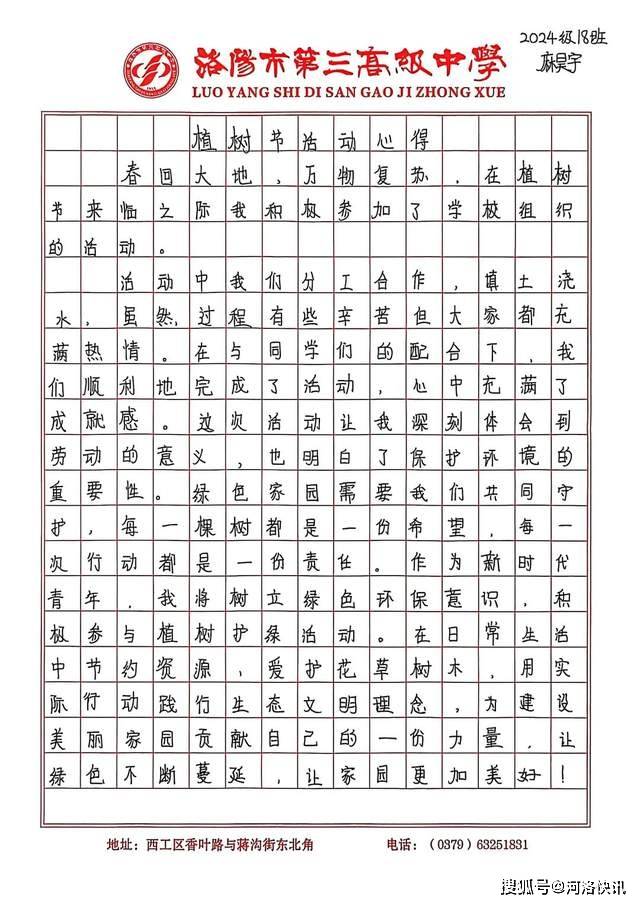 2024级18班
麻昊宇
洛阳市第三高级中学
LUO YANG SHI DI SAN GAO JI ZHONG XUE
植树节活动心得
春回大地,万物复苏,在植树
节来临之际我积极参加了学校组织
的活动。
活动中我们分工合作,填土浇
水,虽然过程有些辛苦但大家都充
满热情。在与同学们的配合下,我
们顺利地完成了活动,心中充满了
成就感。这次活动让我深刻体会到
劳动的意义,也明白了保护环境的
重要性。绿色家园需要我们共同守
护,每一棵树都是一份希望,每一
次行动都是一份责任。作为新时代
青年,我将树立绿色环保意识,积
极参与植树护绿活动。在日常生活
中节约资源,爱护花草树木,用实
际行动践行生态文明理念,为建设
美丽家园贡献自己的一份力量,让
绿色不断蔓延,让家园更加美好!
地址:西工区香叶路与蒋沟街东北角 电话:(0379)63251831
搜狐号@河洛快讯